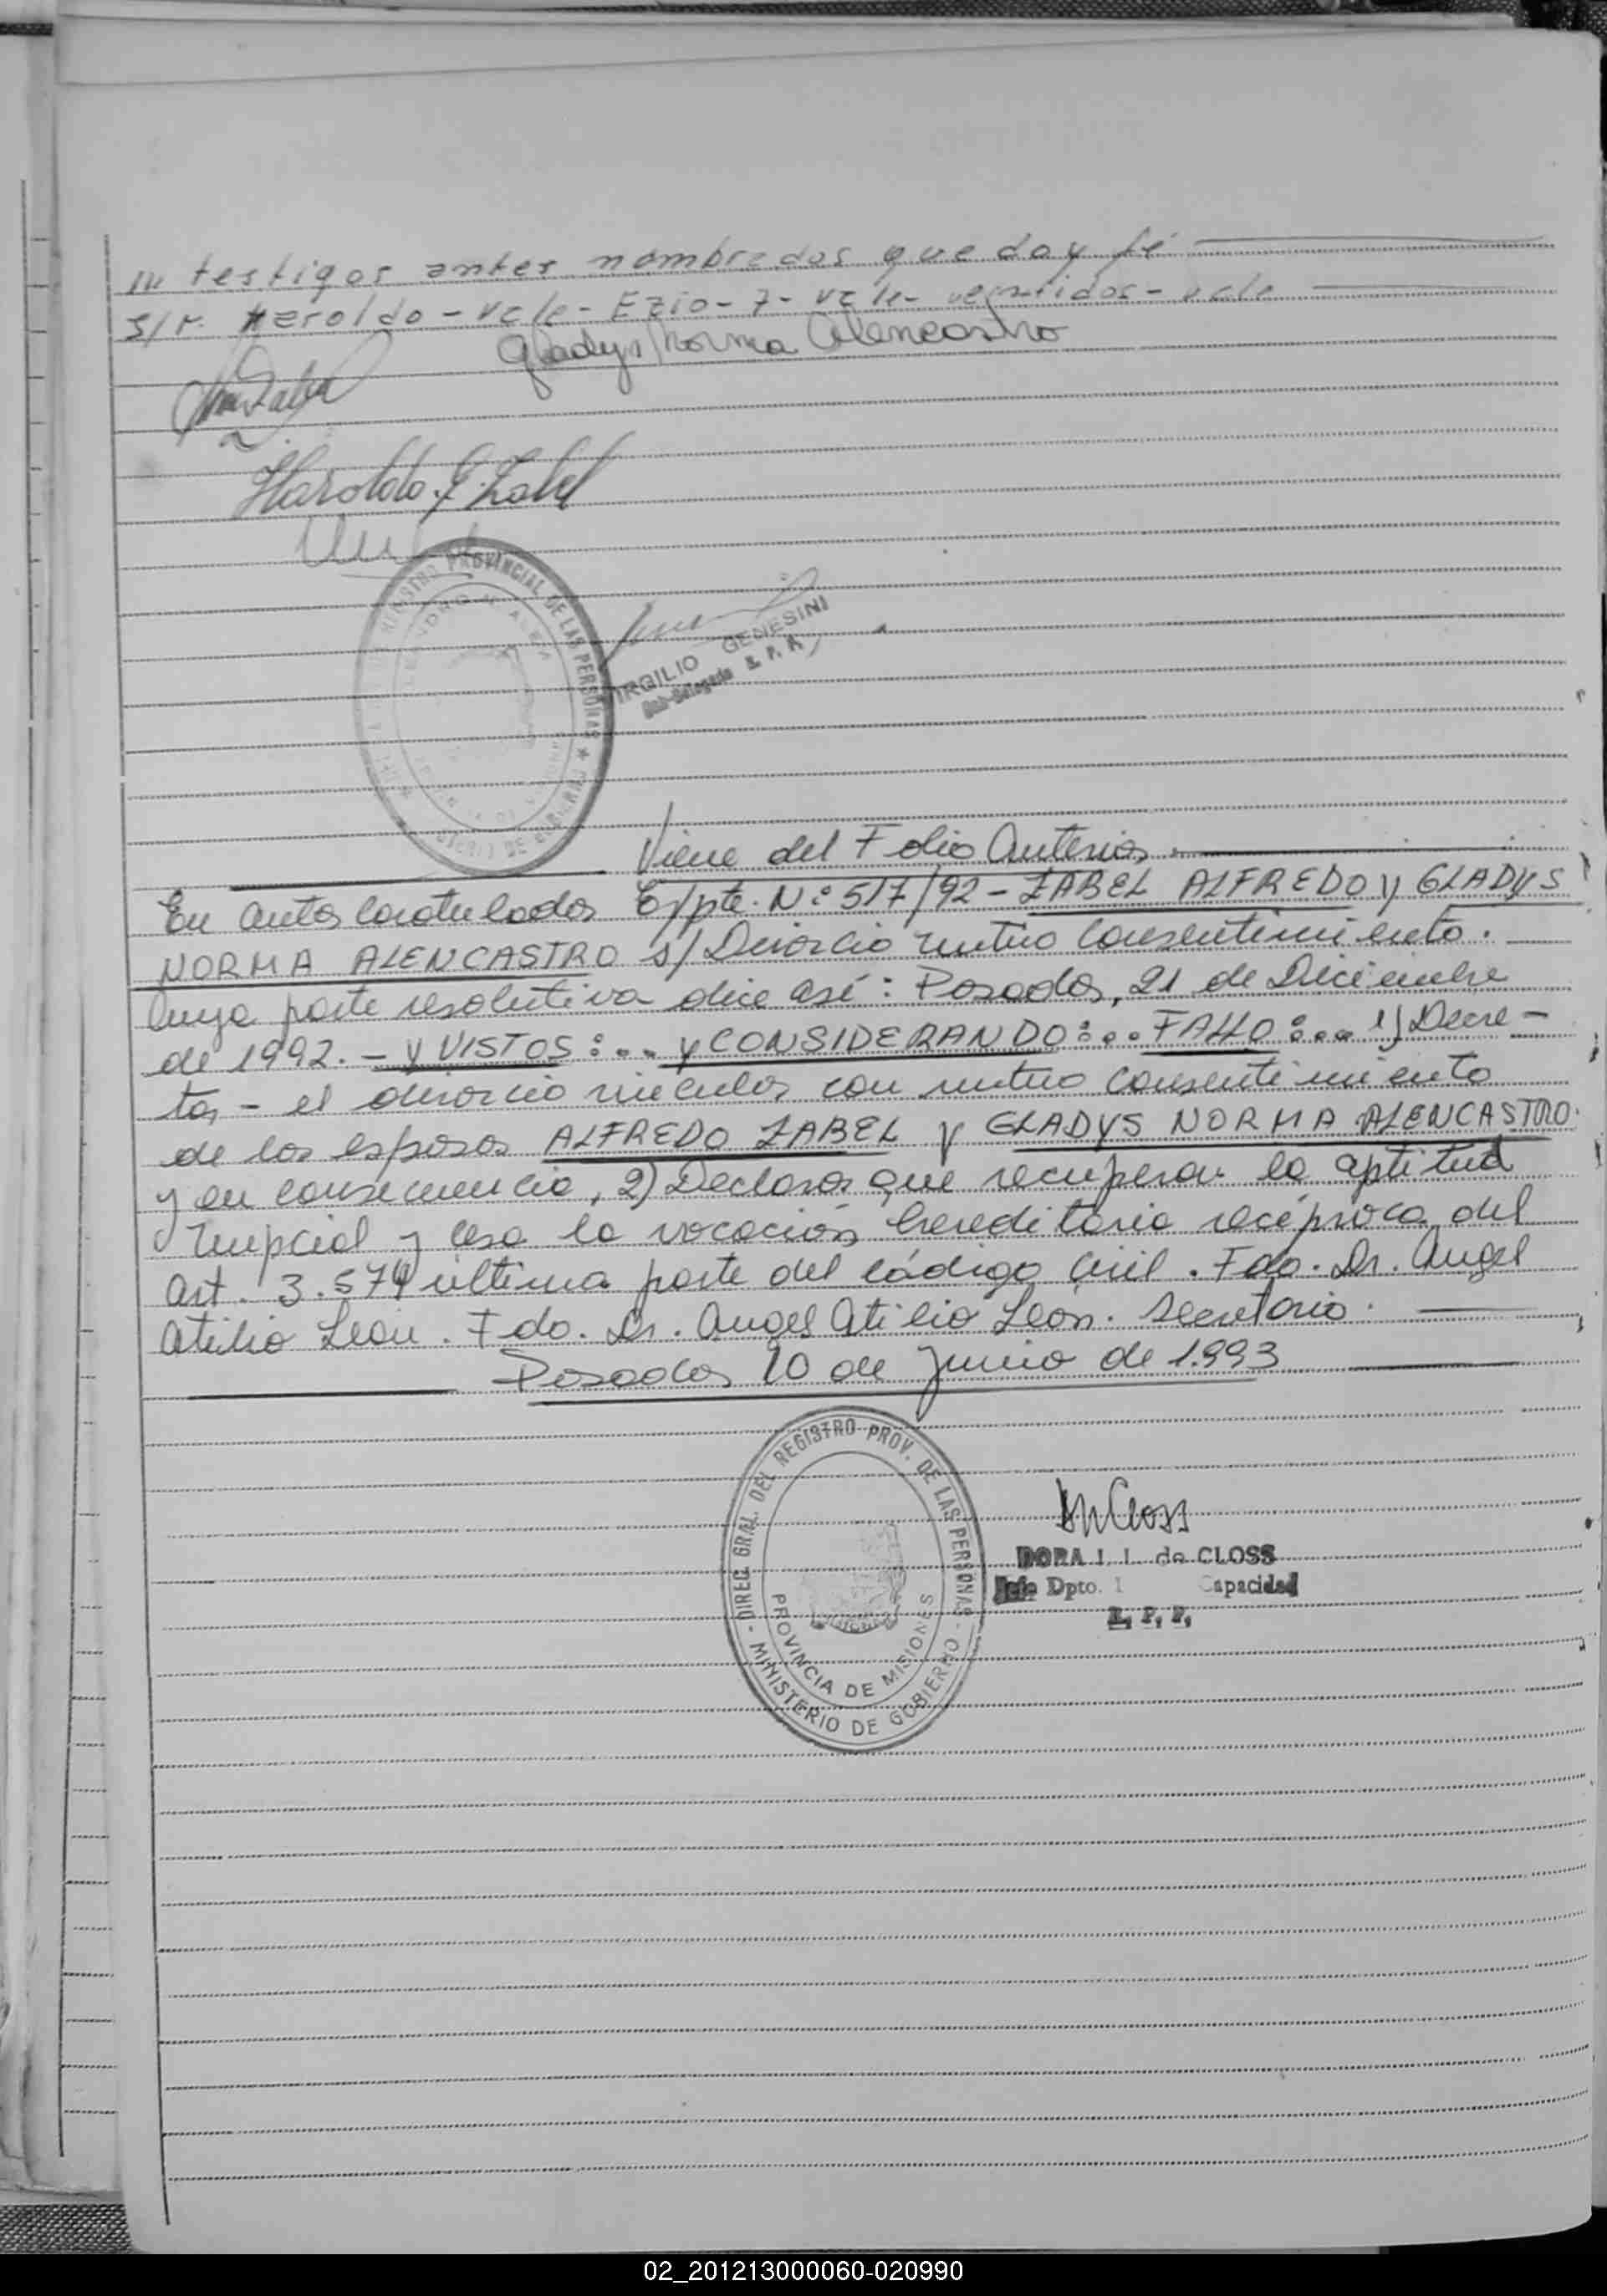 /// testigos antes nombrados que doy fé
S/r. Heroldo - vale - Ezio - 7 - vale - vale
Gladys Norma Alencastro
Haroldo E. Zabel
REGISTRO PROVINCIAL DE LAS PERSONAS
VIRGILIO GENESINI
Sub-Delegado R. P. P.
Viene del Folio Anterior.
En autos caratulados Expte. N: 517/92 - ZABEL ALFREDO y GLADYS
NORMA ALENCASTRO s/ Divorcio mutuo consentimiento.
Cuya parte resolutiva dice asi: Posadas, 21 de Diciembre
de 1992. - y VISTOS:... y CONSIDERANDO:... FALLO:... 1) Decre-
tar - el divorcio vincular con mutuo consentimiento
de los esposos ALFREDO ZABEL y GLADYS NORMA ALENCASTRO.
y en consecuencia, 2) Declarar que recuperan la aptitud
nupcial y cesa la vocación hereditaria recíproca del
art. 3.574 última parte del código Civil. Fdo. Dr. Angel
Atilio Leon. Fdo. Dr. Angel Atilio Leon. Secretario.
Posadas 10 de Junio de 1.993
DIREC. GRAL. DEL REGISTRO PROV. DE LAS PERSONAS - MINISTERIO DE GOBIERNO -
PROVINCIA DE MISIONES
DORA I. L. de CLOSS
Jefe Dpto. Capacidad
R. P. P.
02_201213000060-020990